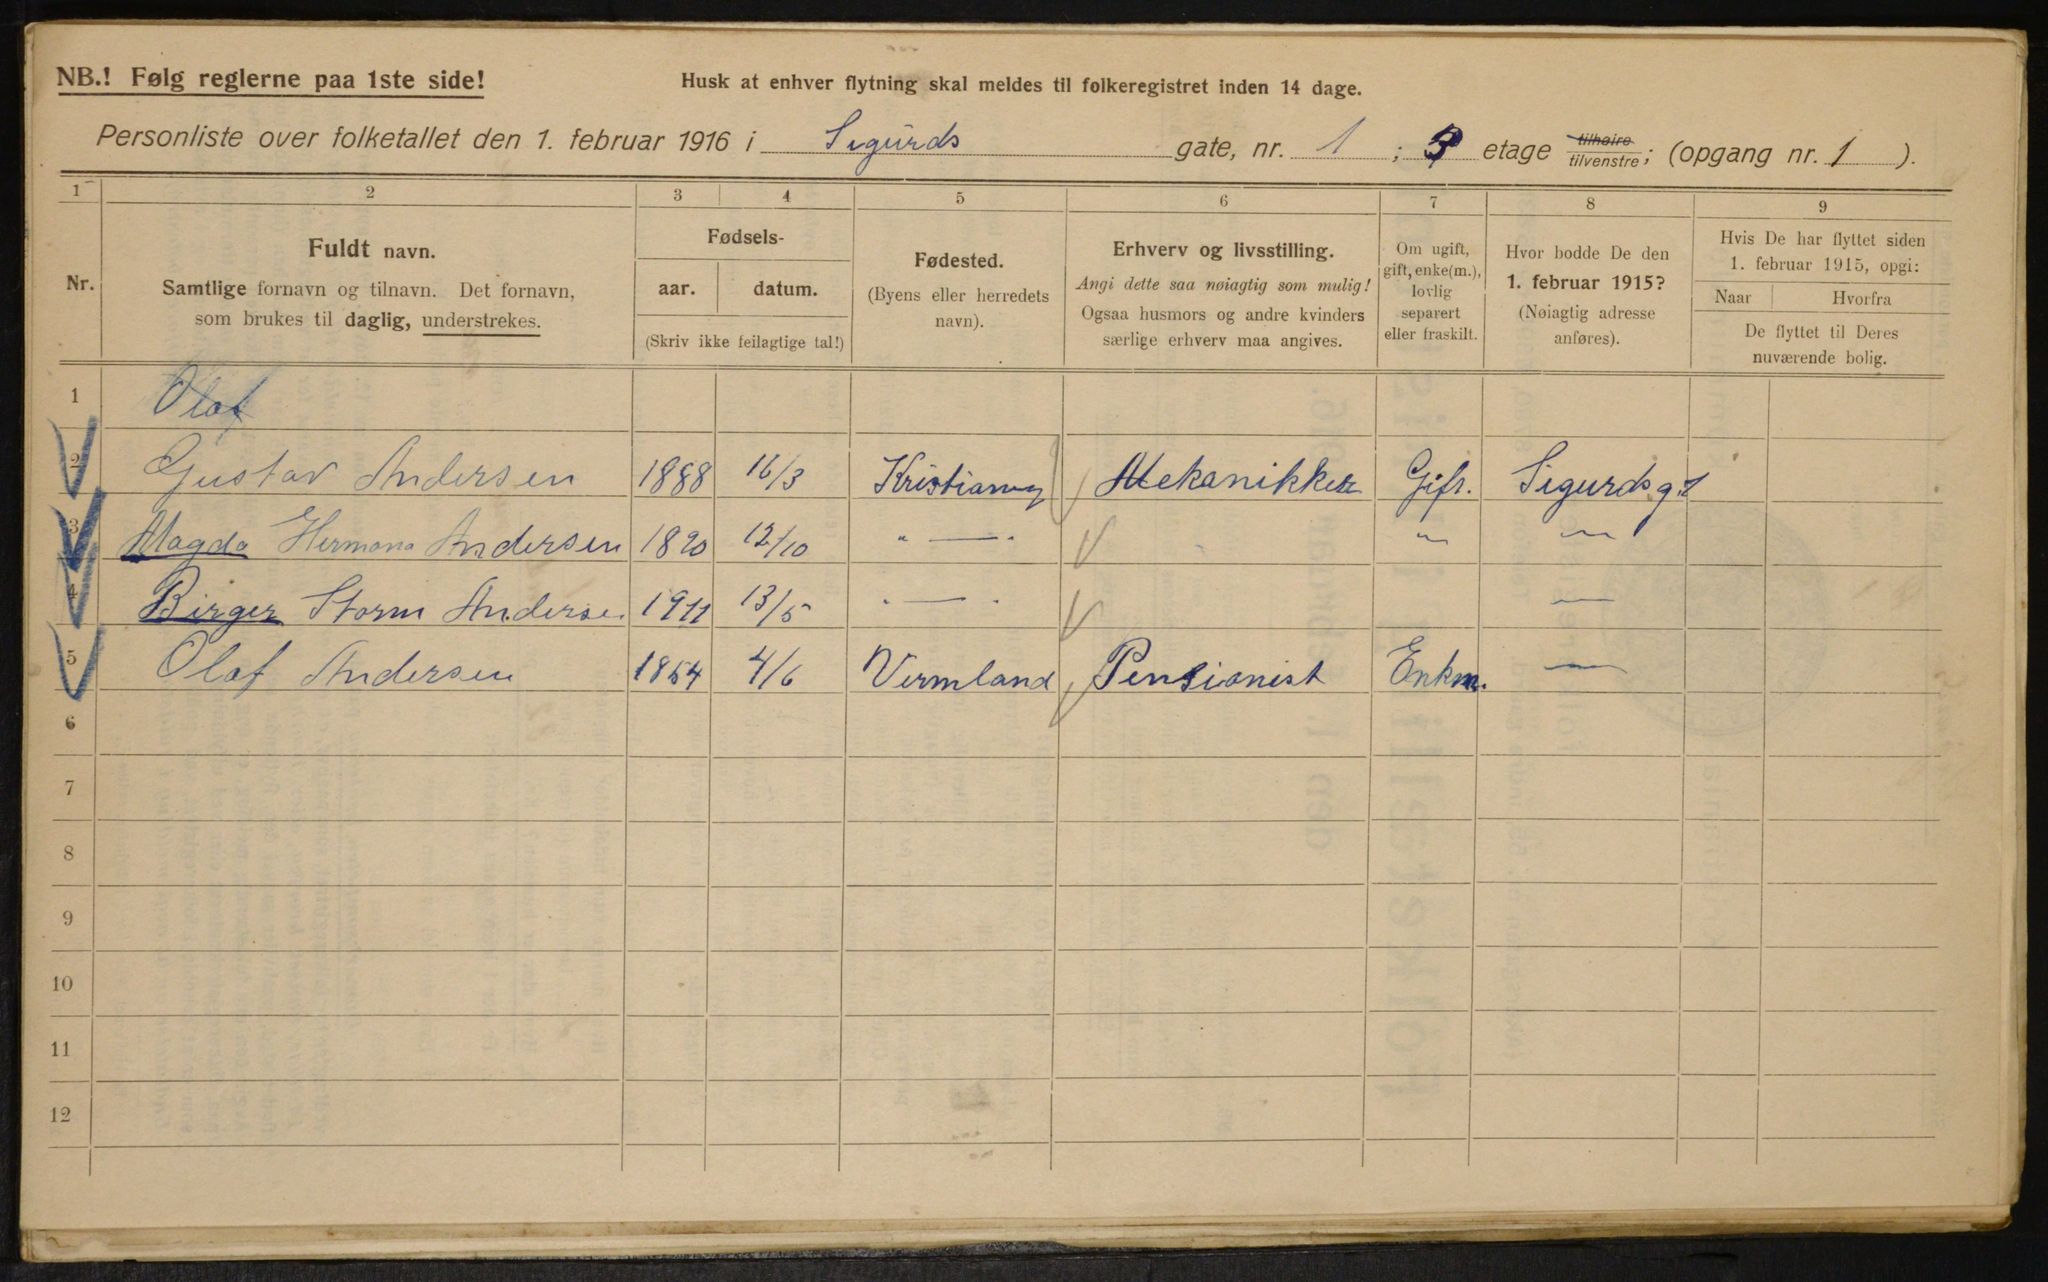 NB.! Følg reglerne paa 1ste side!
Husk at enhver flytning skal meldes til folkeregistret inden 14 dage.
Personliste over folketallet den 1. februar 1916 i Sigurds gate, nr. 1 ; 3 etage tilhøire tilvenstre; (opgang nr. 1 ).
1 2 3 4 5 6 7 8 9
Nr.
Fuldt navn.
Samtlige fornavn og tilnavn. Det fornavn,
som brukes til daglig, understrekes.
Fødsels-
aar. datum.
(Skriv ikke feilagtige tal!)
Fødested.
(Byens eller herredets
navn).
Erhverv og livsstilling.
Angi dette saa nøiagtig som mulig!
Ogsaa husmors og andre kvinders
særlige erhverv maa angives.
Om ugift,
gift, enke(m.),
lovlig
separert
eller fraskilt.
Hvor bodde De den
1. februar 1915?
(Nøiagtig adresse
anføres).
Hvis De har flyttet siden
1. februar 1915, opgi:
Naar Hvorfra
De flyttet til Deres
nuværende bolig.
1 Olaf
2 Gustav Andersen 1888 16/3 Kristiany Mekanikker Gift. Sigurdsg. 1
3 Magda Hermana Andersen 1890 12/10 " — " " —
4 Birger Storm Andersen 1911 13/5 " — " —
5 Olaf Andersen 1854 4/6 Vermland Pensionist Enkm. —
6
7
8
9
10
11
12